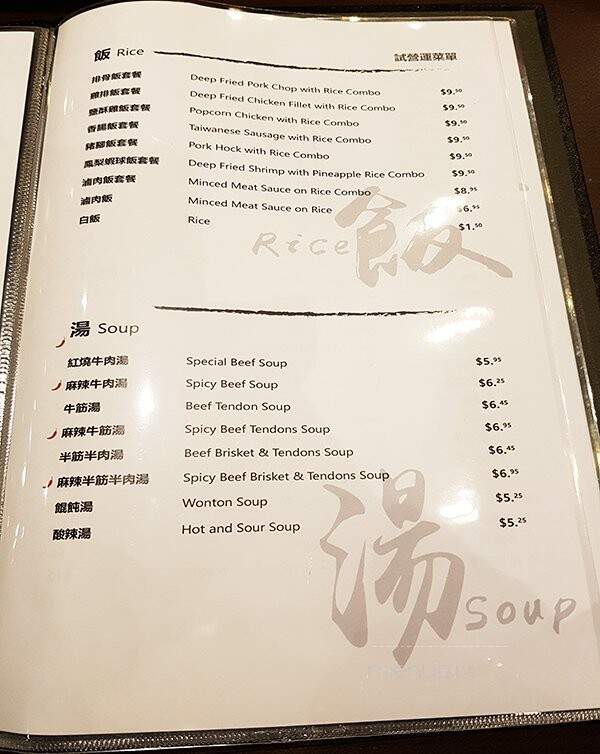 飯 Rice
試營運菜單
排骨飯套餐 Deep Fried Pork Chop with Rice Combo $9.50
雞排飯套餐 Deep Fried Chicken Fillet with Rice Combo $9.50
鹽酥雞飯套餐 Popcorn Chicken with Rice Combo $9.50
香腸飯套餐 Taiwanese Sausage with Rice Combo $9.50
豬腳飯套餐 Pork Hock with Rice Combo $9.50
鳳梨蝦球飯套餐 Deep Fried Shrimp with Pineapple Rice Combo $9.50
滷肉飯套餐 Minced Meat Sauce on Rice Combo $8.95
滷肉飯 Minced Meat Sauce on Rice $6.95
白飯 Rice $1.50
Rice 飯
湯 Soup
紅燒牛肉湯 Special Beef Soup $5.95
麻辣牛肉湯 Spicy Beef Soup $6.25
牛筋湯 Beef Tendon Soup $6.45
麻辣牛筋湯 Spicy Beef Tendons Soup $6.95
半筋半肉湯 Beef Brisket & Tendons Soup $6.45
麻辣半筋半肉湯 Spicy Beef Brisket & Tendons Soup $6.95
餛飩湯 Wonton Soup $5.25
酸辣湯 Hot and Sour Soup $5.25
湯 Soup